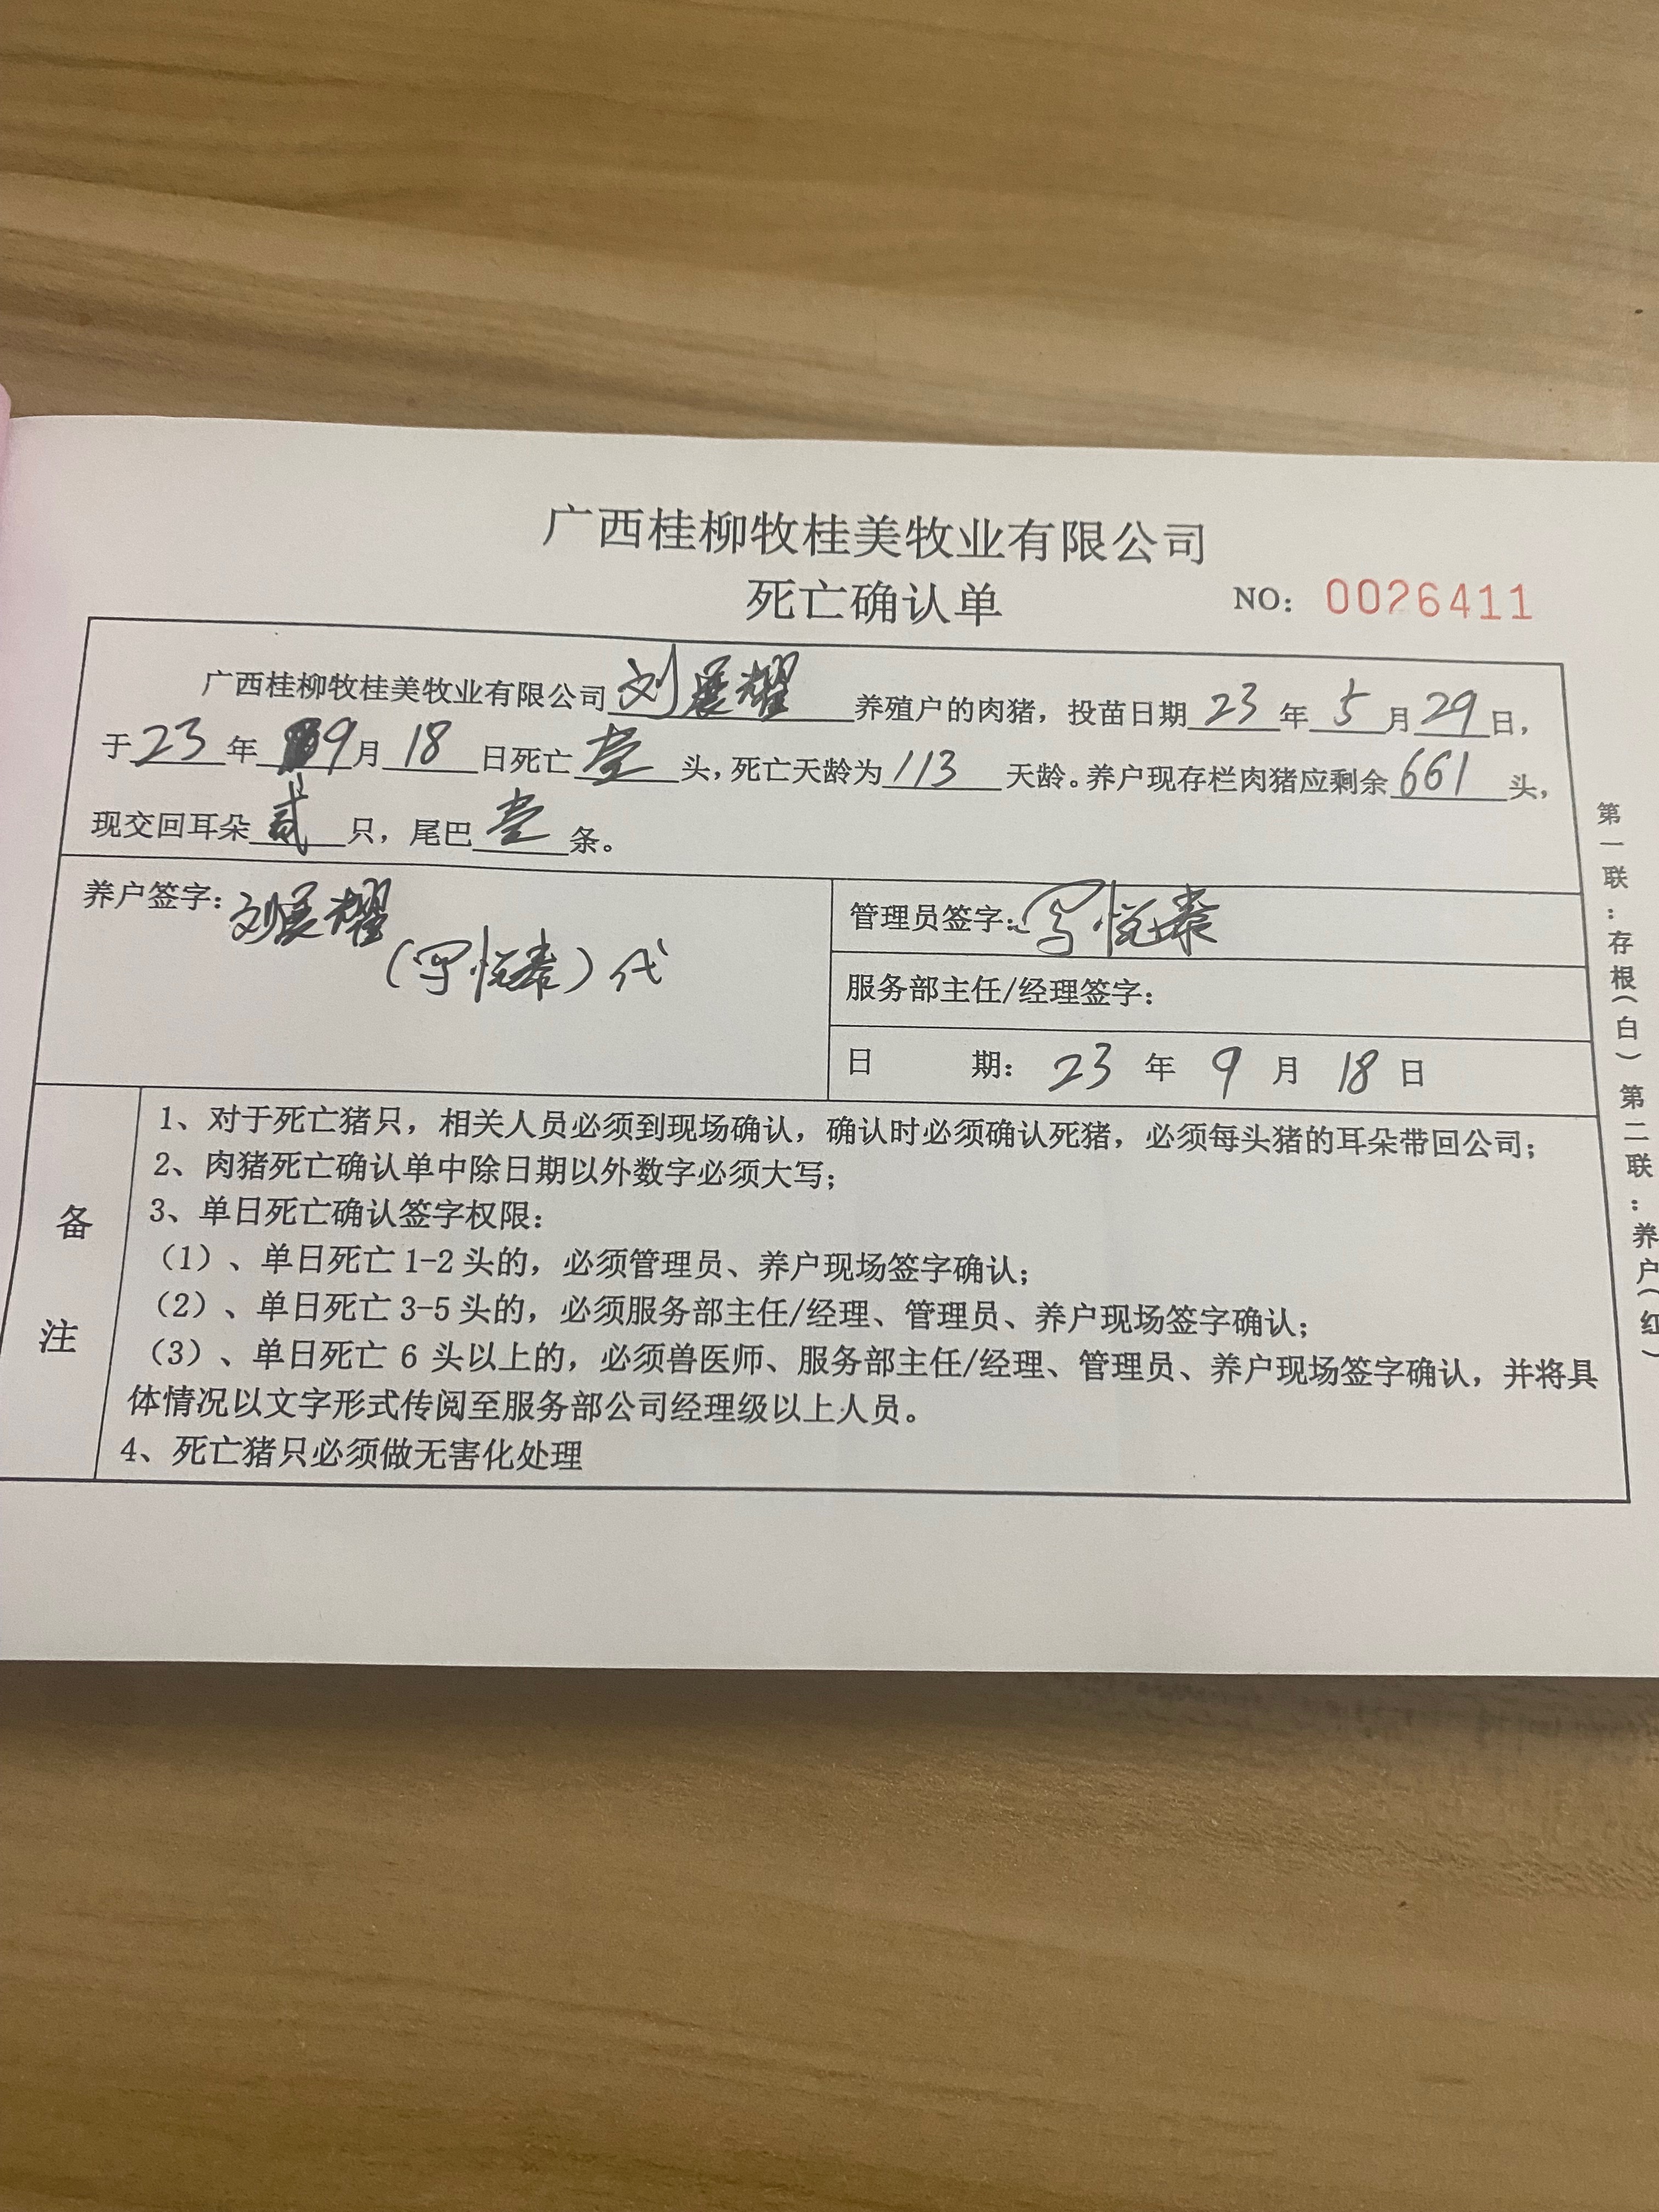 广西桂柳牧桂美牧业有限公司
死亡确认单 NO: 0026411
广西桂柳牧桂美牧业有限公司刘展耀养殖户的肉猪，投苗日期23年5月29日，
于23年9月18日死亡壹头，死亡天龄为113天龄。养户现存栏肉猪应剩余661头，
现交回耳朵贰只，尾巴壹条。
养户签字：刘展耀
（悦泰）代
管理员签字：悦泰
服务部主任/经理签字：
日期：23年9月18日
备注
1、对于死亡猪只，相关人员必须到现场确认，确认时必须确认死猪，必须每头猪的耳朵带回公司；
2、肉猪死亡确认单中除日期以外数字必须大写；
3、单日死亡确认签字权限：
（1）、单日死亡1-2头的，必须管理员、养户现场签字确认；
（2）、单日死亡3-5头的，必须服务部主任/经理、管理员、养户现场签字确认；
（3）、单日死亡 6 头以上的，必须兽医师、服务部主任/经理、管理员、养户现场签字确认，并将具
体情况以文字形式传阅至服务部公司经理级以上人员。
4、死亡猪只必须做无害化处理
第一联：存根（白）第二联：养户（红）